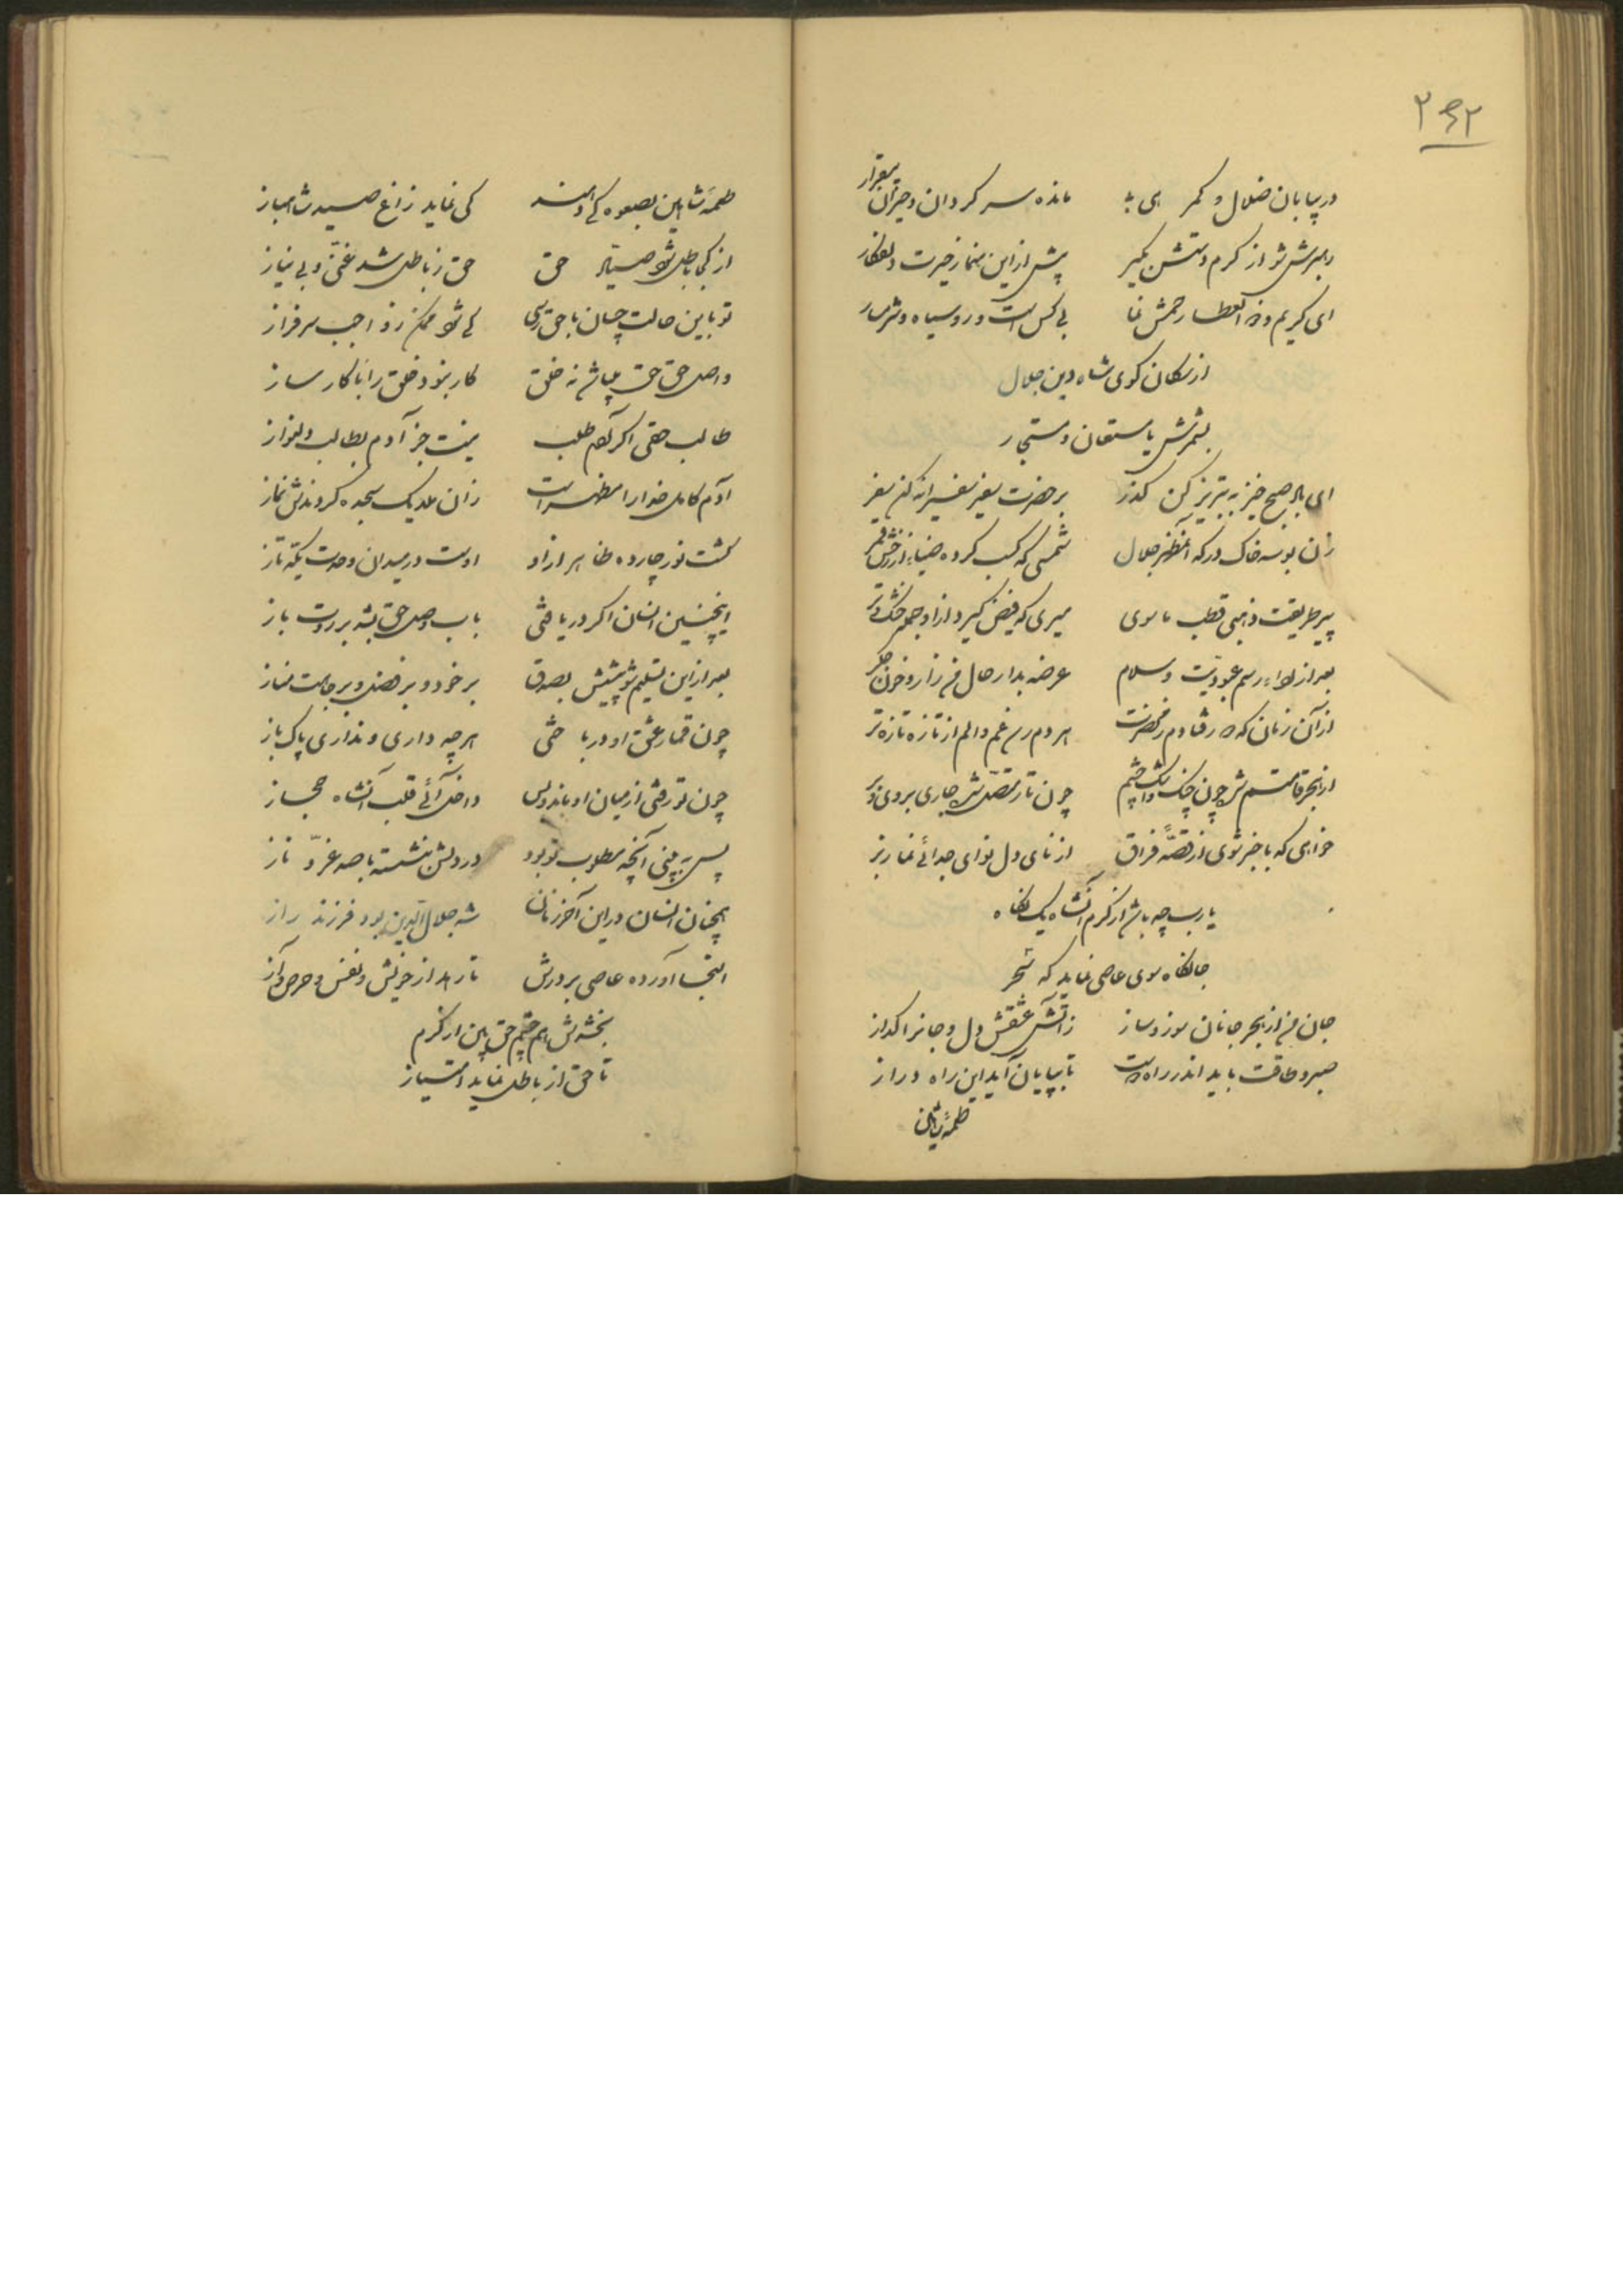 ۲۶۲
در بیابان ضلال و گمرهی مانده سرگردان و حیران بیقرار
رهبرش شو از کرم دستش بگیر پیش ازین منما ز خیرت دلفکار
ای کریم ذوالعطا رحمش نما بی کس است و رو سیاه و شرمسار
از سگان کوی شاه دین جلال
بشمرش یا مستعان و مستجار
ای باد صبح خیز به تبریز کن گذر بر حضرت سفیر
زان بوسه خاک درگه آنمظهر جلال شمسی که کسب کرده ضیاء از رخش قمر
پیر طریقت ذهبی قطب ماسوی میری که فیض گیرد ازو جمله خشک و تر
بعد از اداء رسم عبودیت و سلام عرضه بدار حال من زار و خون جگر
از آن زمان که دور فتادم ز حضرتت هر دم رسد غم و الم از تازه تازه تر
از هجر قامتم شده چون چنگ و اشک چشم چون تار متصل شده جاری بروی و بر
خواهی که با خبر شوی از قصهٔ فراق از نای دل نوای جدائی نما ز بر
یارب چه باشد ار کرم آنشاه یک نگاه
جا نگاه سوی عاصی نماید که شد
جان من از هجر جانان سوز و ساز ز آتش عشقش دل و جانرا گداز
صبر و طاقت باید اندر راه دوست تا بپایان آید این راه دراز
طعمهٔ شاهین
طعمهٔ شاهین بصعوه کی دهند کی نماید زاغ صید شاهباز
از کجا باطل شود صیاد حق حق ز باطل شد غنی و بی نیاز
تو باین حالت چسان با حق رسی کی شود ممکن ز واجب سرفراز
واصل حق حق بباشد نه خلق کار بنود خلق را با کارساز
طالب حقی اگر آدم طلب نیست جز آدم بطالب دلنواز
آدم کامل خدا را مظهر است زان ملایک سجده کردندش نماز
گشت نور چارده ظاهر ازو اوست در میدان وحدت یکه تاز
اینچنین انسان اگر دریافتی باب وصل حق بشد بر روت باز
بعد ازین تسلیم شو پیشش بصدق بر خود و بر فضل و بر جاهت مناز
چون قمار عشق او درباختی هرچه داری و نداری پاک باز
چون تو رفتی از میان او ماند و بس داخل آئی قلب آنشاه حجاز
پس ببینی آنچه مطلوب تو بود در دلش بنشسته با صد عزّ و ناز
همچنان انسان در این آخر زمان شه جلال الدین بود فرزند راز
التجا آورده عاصی بر درش تا رهد از خویش و نفس و حرص و آز
بخشدش هم چشم حق بین از کرم
تا حق از باطل نماید امتیاز